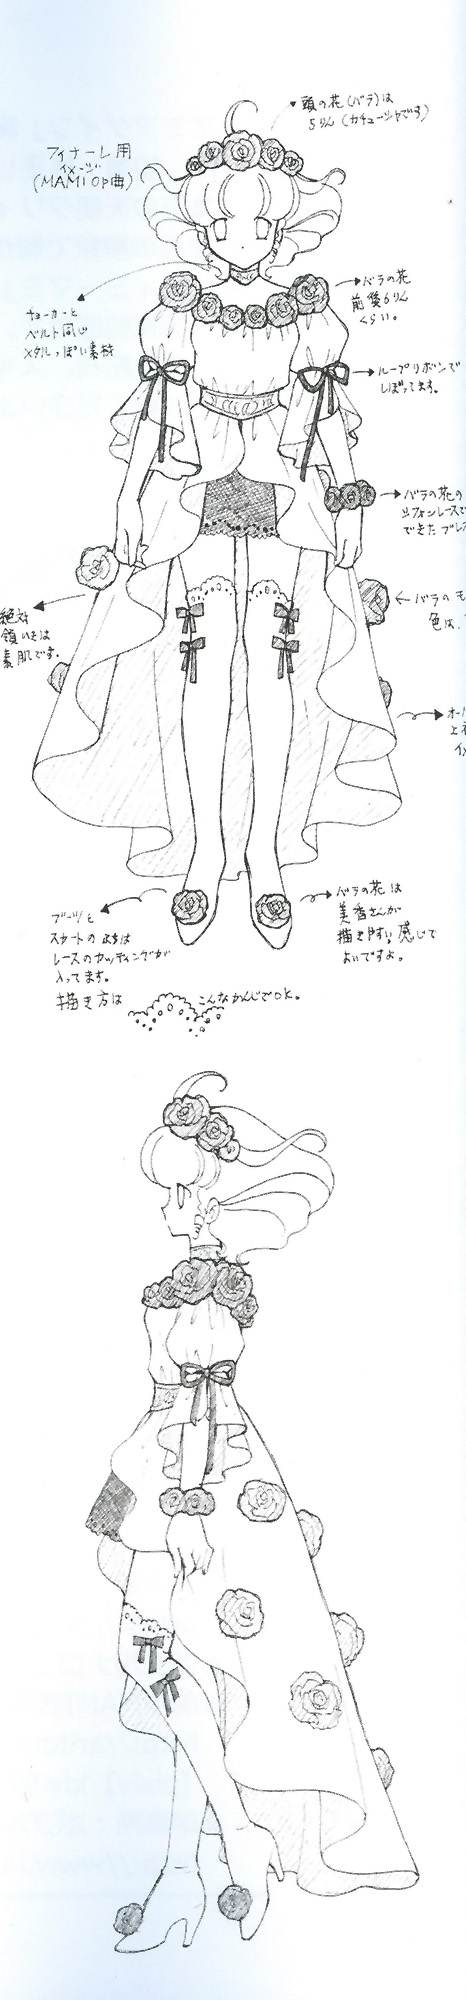 頭の花(バラ)は
5りん(カチューシャです)
フィナーレ用
イメージ
(MAMI OP曲)
バラの花
前後6りん
くらい。
チョーカーと
ベルト同じ
メタルっぽい素材
ループリボンで
しぼってます。
バラの花の
シフォンレースで
できたブレ
絶対
領いきは
素肌です。
バラのモ
色は、
オー
上
イ
ブーツと
スカートのふちは
レースのカッティングが
入ってます。
描き方は こんなかんじでOK。
バラの花は
美香さんが
描きやすい感じで
よいですよ。